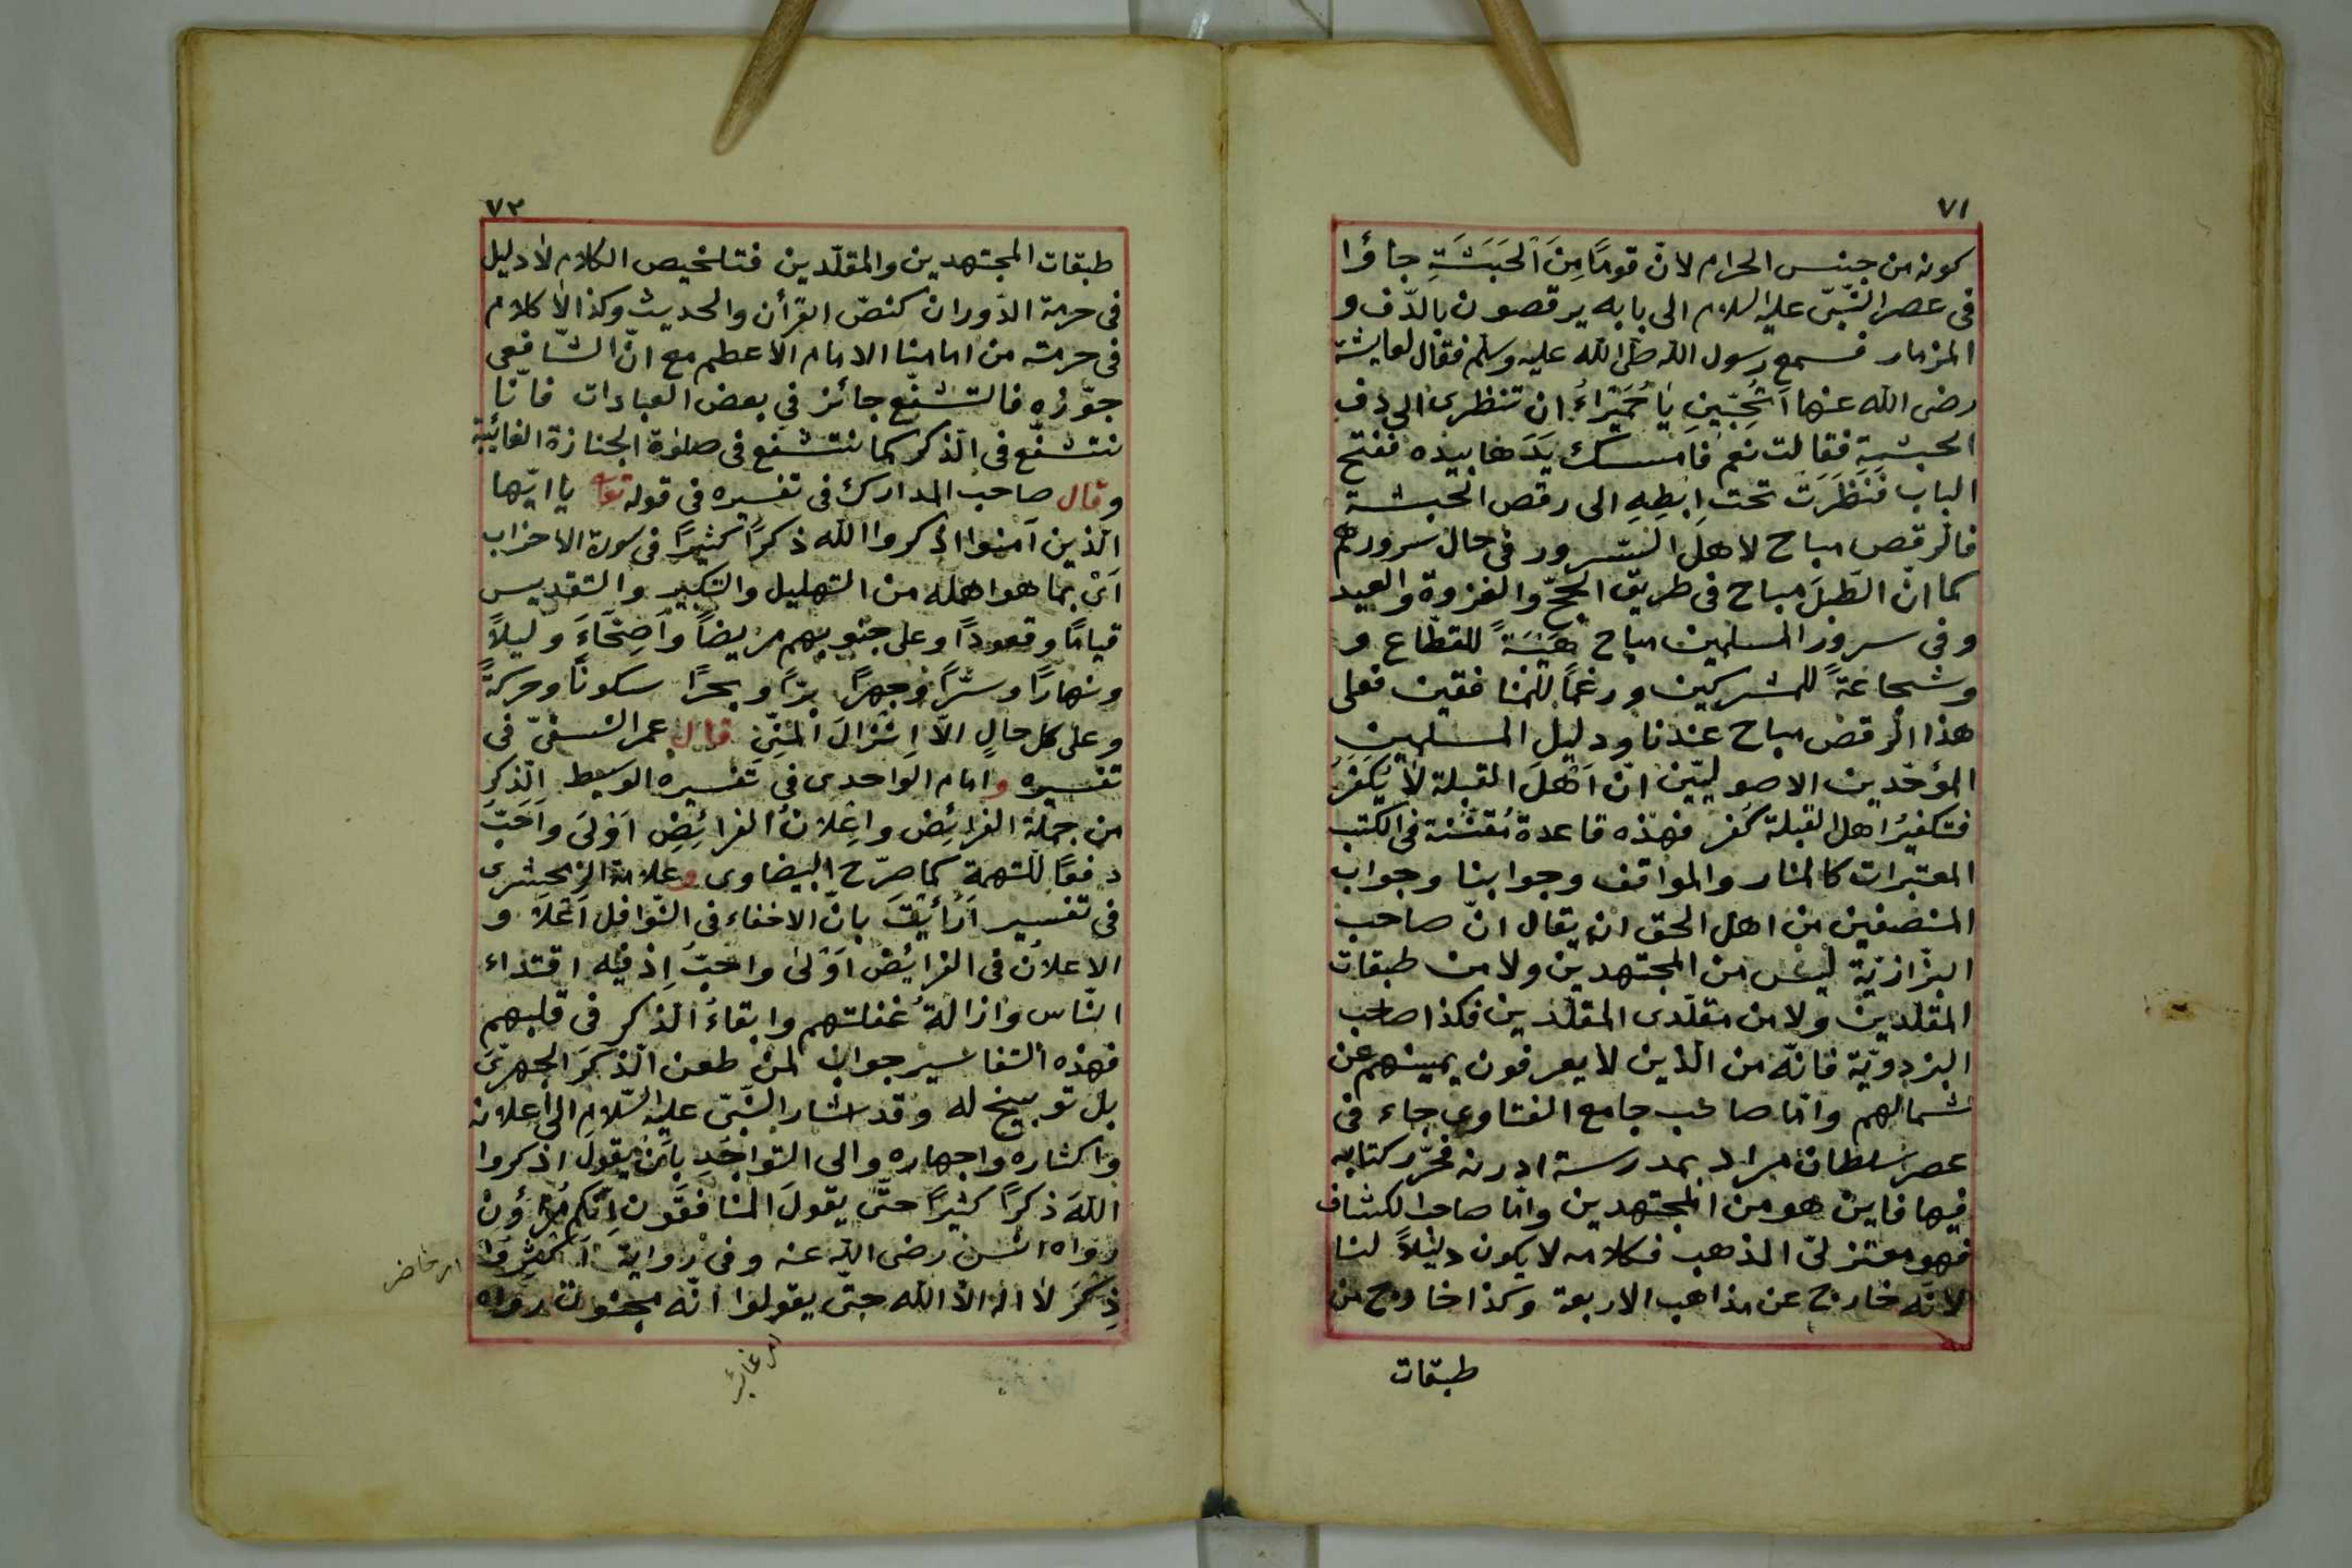 ٧١
كونه من جنس الحرام لانّ قومًا مِنَ اَلحَبَشَةِ جاؤا
فى عصر النّبىّ عليه السلام الى بابه يرقصون بالدّف و
المزمار فسمع رسول الله صلى الله عليه وسلم فقال لعايشة
رضى الله عنها اَتُحِبّينِ يا حُمَيْرَاءُ ان تنظرى الى دف
الحبشة فقالت نعم فامسك يَدَها بيده ففتح
الباب فَنَظَرَت تحت اِبطِهِ الى رقص الحبشة
فالرقص مباح لاهل السّرور فى حال سرورهم
كما انّ الطّبلَ مباح فى طريق الحجّ والغزوة والعيد
وفى سرور المسلمين مباح هَيْبَةً للقطّاع و
وشجاعةً للمشركين ورغمًا للمنافقين فعلى
هذا الرقص مباح عندنا ودليل المسلمين
المؤحّدين الاصوليّين انّ اَهْلَ القبلة لا يُكَفَّرُ
فتكفيرُ اهل القبلة كُفر فهذه قاعدة فى الكتب
المعتبرات كالمنار والمواقف وجوابنا وجواب
المنصفين من اهل الحق ان يقال انّ صاحب
البزّازيّة ليس من المجتهدين ولا من طبقات
المقلّدين ولا من مقلّدى المقلّدين فكذا صاحب
البزدويّة فانّه من الّذين لا يعرفون يمينهم عن
شمالهم وامّا صاحب جامع الفتاوى جاء فى
عصر سلطان مراد بمدرسة ادرنه فحرّر كتابه
فيها فاين هو من المجتهدين وامّا صاحب الكشاف
فهو معتزلىّ المذهب فكلامه لا يكون دليلاً لنا
لانّه خارج عن مذاهب الاربعة وكذا خارج من
طبقات
٧٢
طبقات المجتهدين والمقلّدين فتلخيص الكلام لا دليل
فى حرمة الدّوران كنصّ القرأن والحديث وكذا لا كلام
فى حرمته من امامنا الامام الاعظم مع انّ الشّافعى
جوّزه فالتشفّع جائز في بعض العبادات فانّا
نتشفّع فى الذّكر كما نتشفع فى صلوة الجنازة الغائبة
وقال صاحب المدارك فى تفسيره فى قوله تعالى يا ايّها
الّذين آمنوا اذكروا الله ذكرًا كثيرًا فى سورة الاحزاب
اَىْ بما هو اهله من التهليل والتكبير والتقديس
قيامًا وقعودًا وعلى جنوبهم مريضاً وَاَصِحّاءَ وليلاً
ونهارًا وسرًّا وجهرًا برًّا وبحرًا سكونًا وحركةً
وعلى كل حالٍ الاّ اِنْزالَ الْمَنِىّ قال عمر النسفىّ فى
تفسيره وامام الواحدى فى تفسيره الوسيط الذّكر
من جملة الفرائض واِعْلانُ الفرائِضِ اَوْلَى وَاَحَبّ
دفعًا للتهمة كما صرّح البيضاوى وعلامة الزمخشرى
فى تفسير اَرَأَيْتَ بانّ الاخفاء فى النّوافل و
الاعلانُ فى الفرائض اَوْلى واحَبّ اِذ فيه اقتداء
النّاس وَازالةُ غفلتهم وابقاءُ الذّكر فى قلبهم
فهذه التفاسير جواب لمن طعن الذّكرَ الجهرىّ
بل توبيخ له وقد اشار النّبىّ عليه السّلام الى اعلانه
واكثاره واجهاره والى التّواجُدِ بِاَنْ يقول اذكروا
اللهَ ذكرًا كثيرًا حتّى يقولَ المنافقون اِنّكم مُرَاؤن
رواه انس رضى الله عنه وفى رواية اَكْثِرُوا
ذِكْرَ لا اله الاّ الله حتّى يقولوا انّه مجنون رواه
امر حاضر
امر غائب